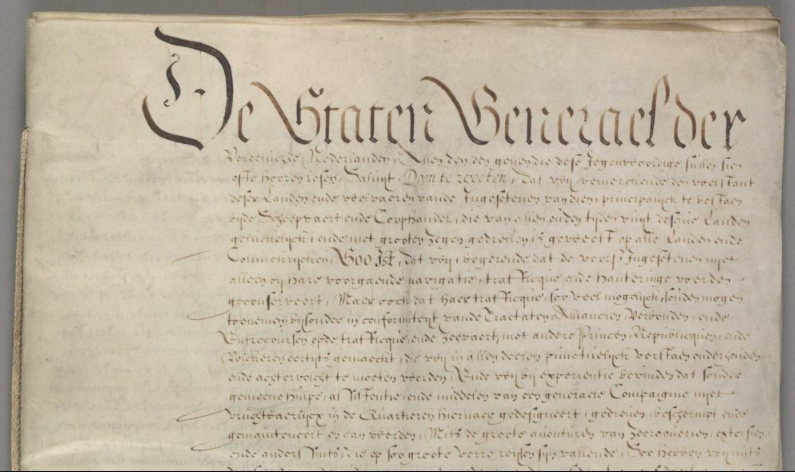 De Staten Generael der
Vereenichde Nederlanden, Allen den genen die dese Jegenwoordige sullen sien
ofte hooren lesen, Saluyt, Doen te weeten, dat wy verm de welstant
deser Landen ende welvaeren vande Ingesetenen van dien principalyck te bestaen
opde Scheepvaert ende Coophandel, die van allen ouden tyden wuyt deselve Landen
geluckelyck, ende met grooten Zegen gedreven is geweest op alle Landen ende
Conincryken, Soo Jst, dat wy, begerende dat de voors Jngesetenen nyet
alleen by hare voorgaende navigatie, trafficque, ende hanteringe worden
geconserveert, Maer oock dat haer trafficque, soo veel mogelyck, souden mogen
toenemen, bysonder in conformiteyt vande Tractaten, Alliancien, Verbonden, ende
Entrecourssen opde trafficque, ende Zeevaert, met andere Princen, Republicquen, ende
Volckeren eertyts gemaeckt, die wy in allen deelen punctuelyck verstaen onderhouden
ende achtervolcht te moeten worden, Ende wy by experientie bevinden dat sonder
gemeene hulpe, assistentie, ende middelen van een generale Compaignie nyet
vruchtbaerlyck in de Quartieren hiernaer gedesigneert, gedreven, beschermpt ende
gemainteneert en can werden, Mits de groote aventuren van Zeerooverien, extorsien,
ende anders sints, die op soo groote verre reysen syn vallende, Soo hebben wy, uuyt